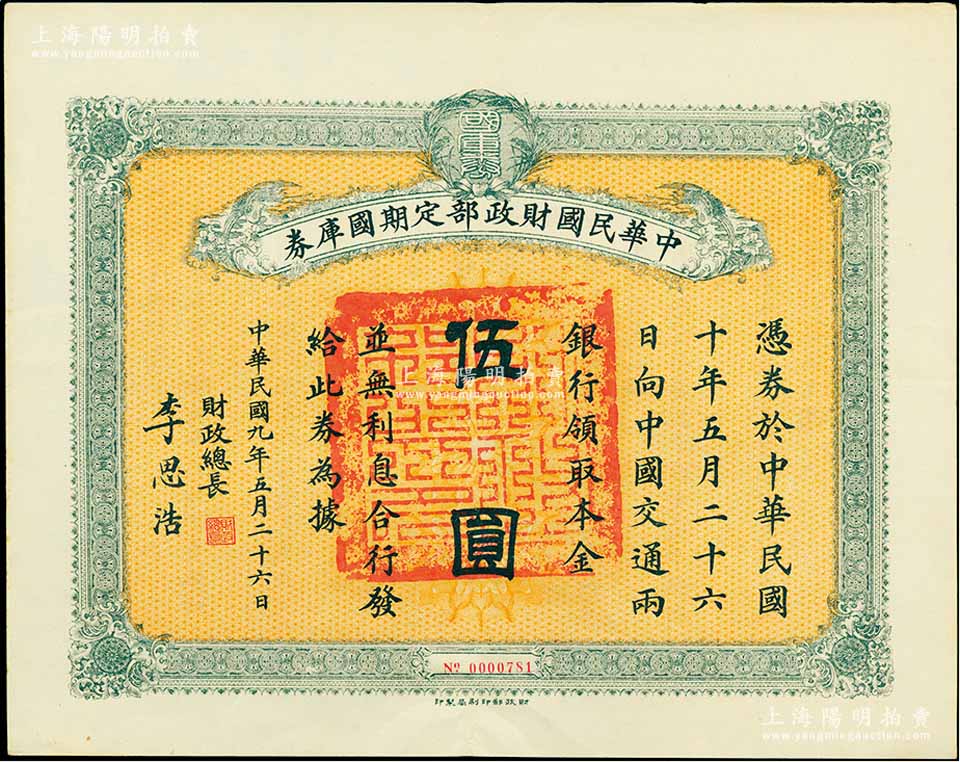 上海陽明拍賣
www.yangmingauction.com
國庫券
中華民國財政部定期國庫券
憑券於中華民國
十年五月二十六
日向中國交通兩
銀行領取本金
伍圓
並無利息合行發
給此券為據
中華民國九年五月二十六日
財政總長
李思浩
上海陽明拍賣
www.yangmingauction.com
No 0000781
財政部印刷局製印
上海陽明拍賣
www.yangmingauction.com